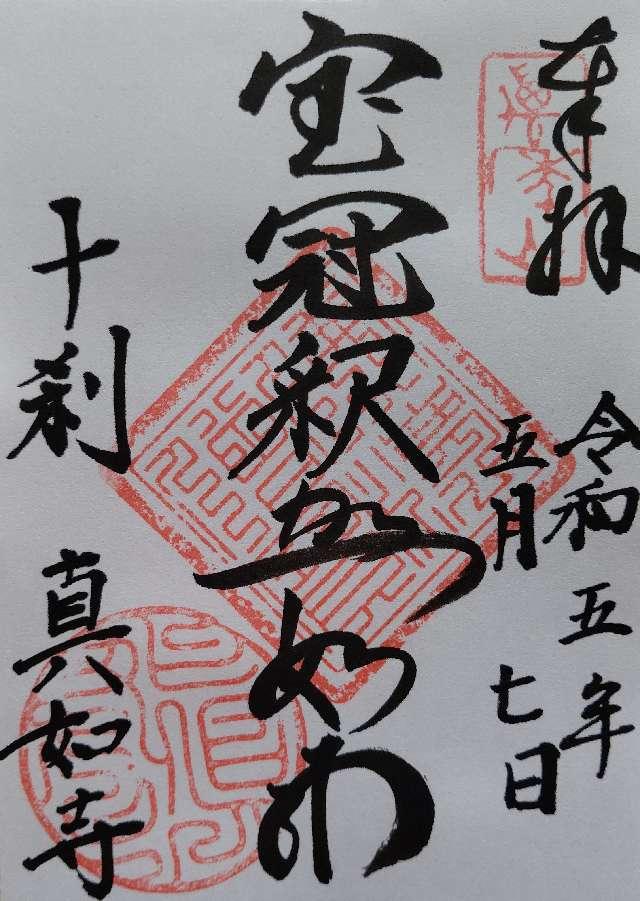 奉拝
令和五年
五月
七日
宝冠釈迦如来
十刹
真如寺